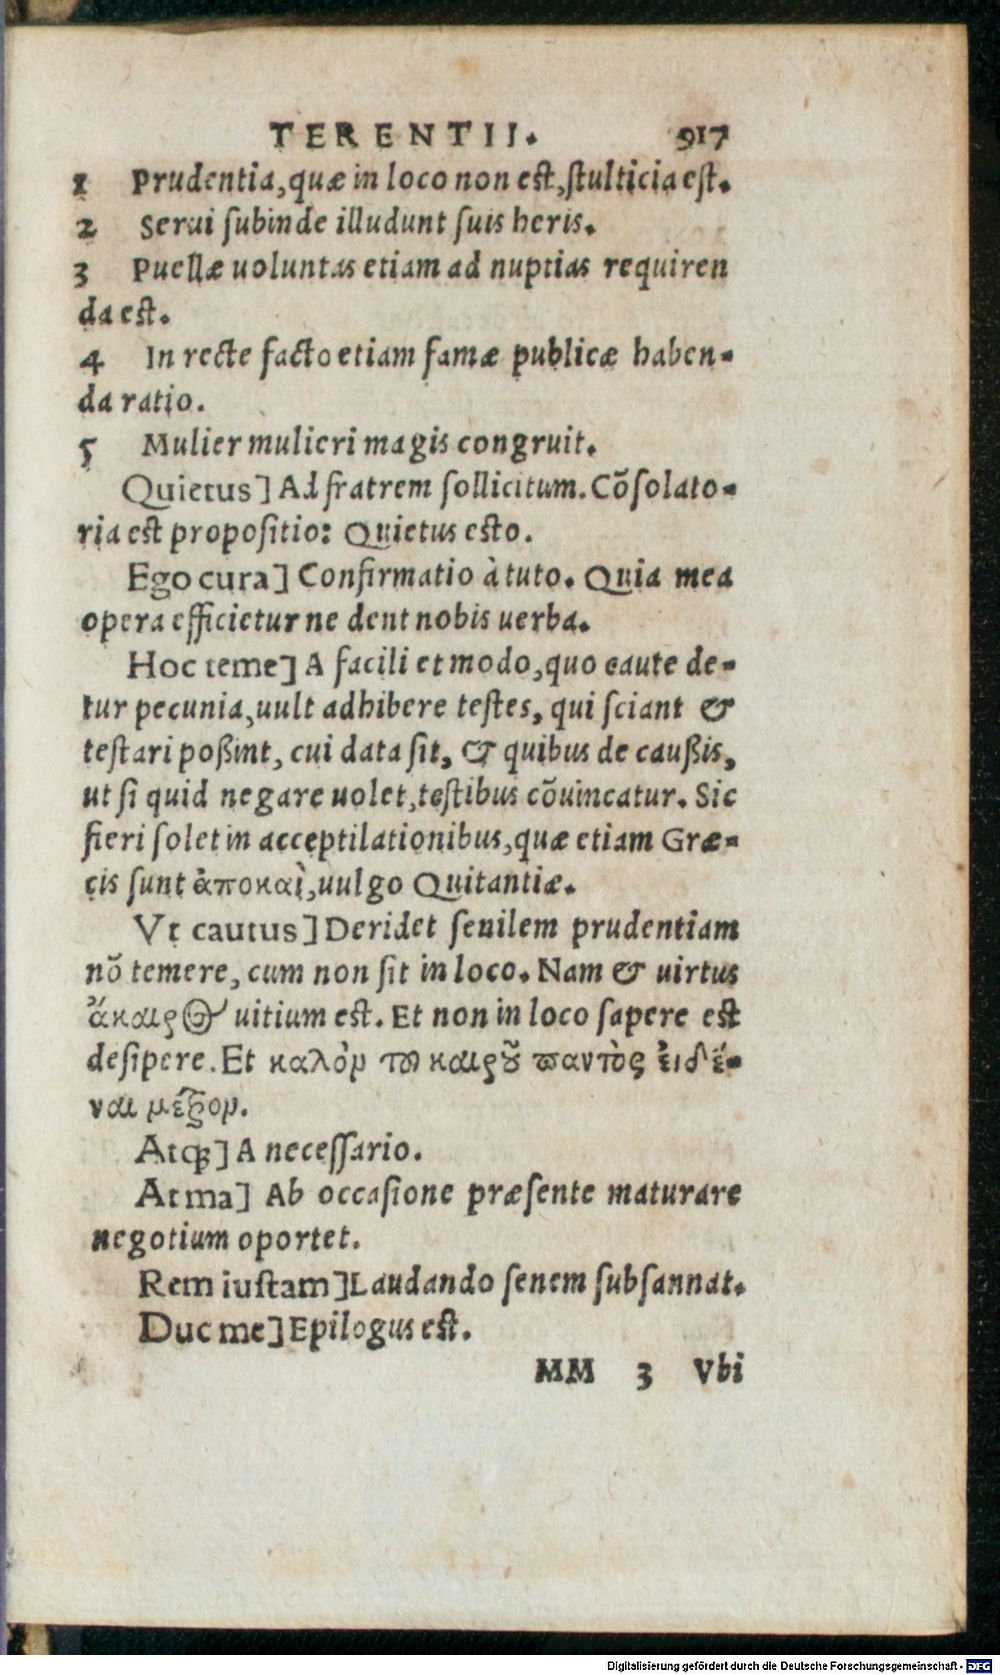 TERENTII. 917
1 Prudentia, quæ in loco non est, stulticia est.
2 Serui subinde illudunt suis heris.
3 Puellæ uoluntas etiam ad nuptias requiren
da est.
4 In recte facto etiam famæ publicæ haben-
da ratio.
5 Mulier mulieri magis congruit.
Quietus] Ad fratrem sollicitum. Cõsolato-
ria est propositio: Quietus esto.
Ego cura] Confirmatio à tuto. Quia mea
opera efficietur ne dent nobis uerba.
Hoc teme] A facili et modo, quo caute de-
tur pecunia, uult adhibere testes, qui sciant &
testari poßint, cui data sit, & quibus de caußis,
ut si quid negare uolet, testibus cõuincatur. Sic
fieri solet in acceptilationibus, quæ etiam Græ-
cis sunt ἀποκαὶ, uulgo Quitantiæ.
Vt cautus] Deridet senilem prudentiam
nõ temere, cum non sit in loco. Nam & uirtus
ἄκαιρος uitium est. Et non in loco sapere est
desipere. Et καλὸν τὸ καιροῦ παντὸς εἰδέ-
ναι μέτρον.
Atq;] A necessario.
At ma] Ab occasione præsente maturare
negotium oportet.
Rem iustam] Laudando senem subsannat.
Duc me] Epilogus est.
MM 3 Vbi
Digitalisierung gefördert durch die Deutsche Forschungsgemeinschaft - DFG